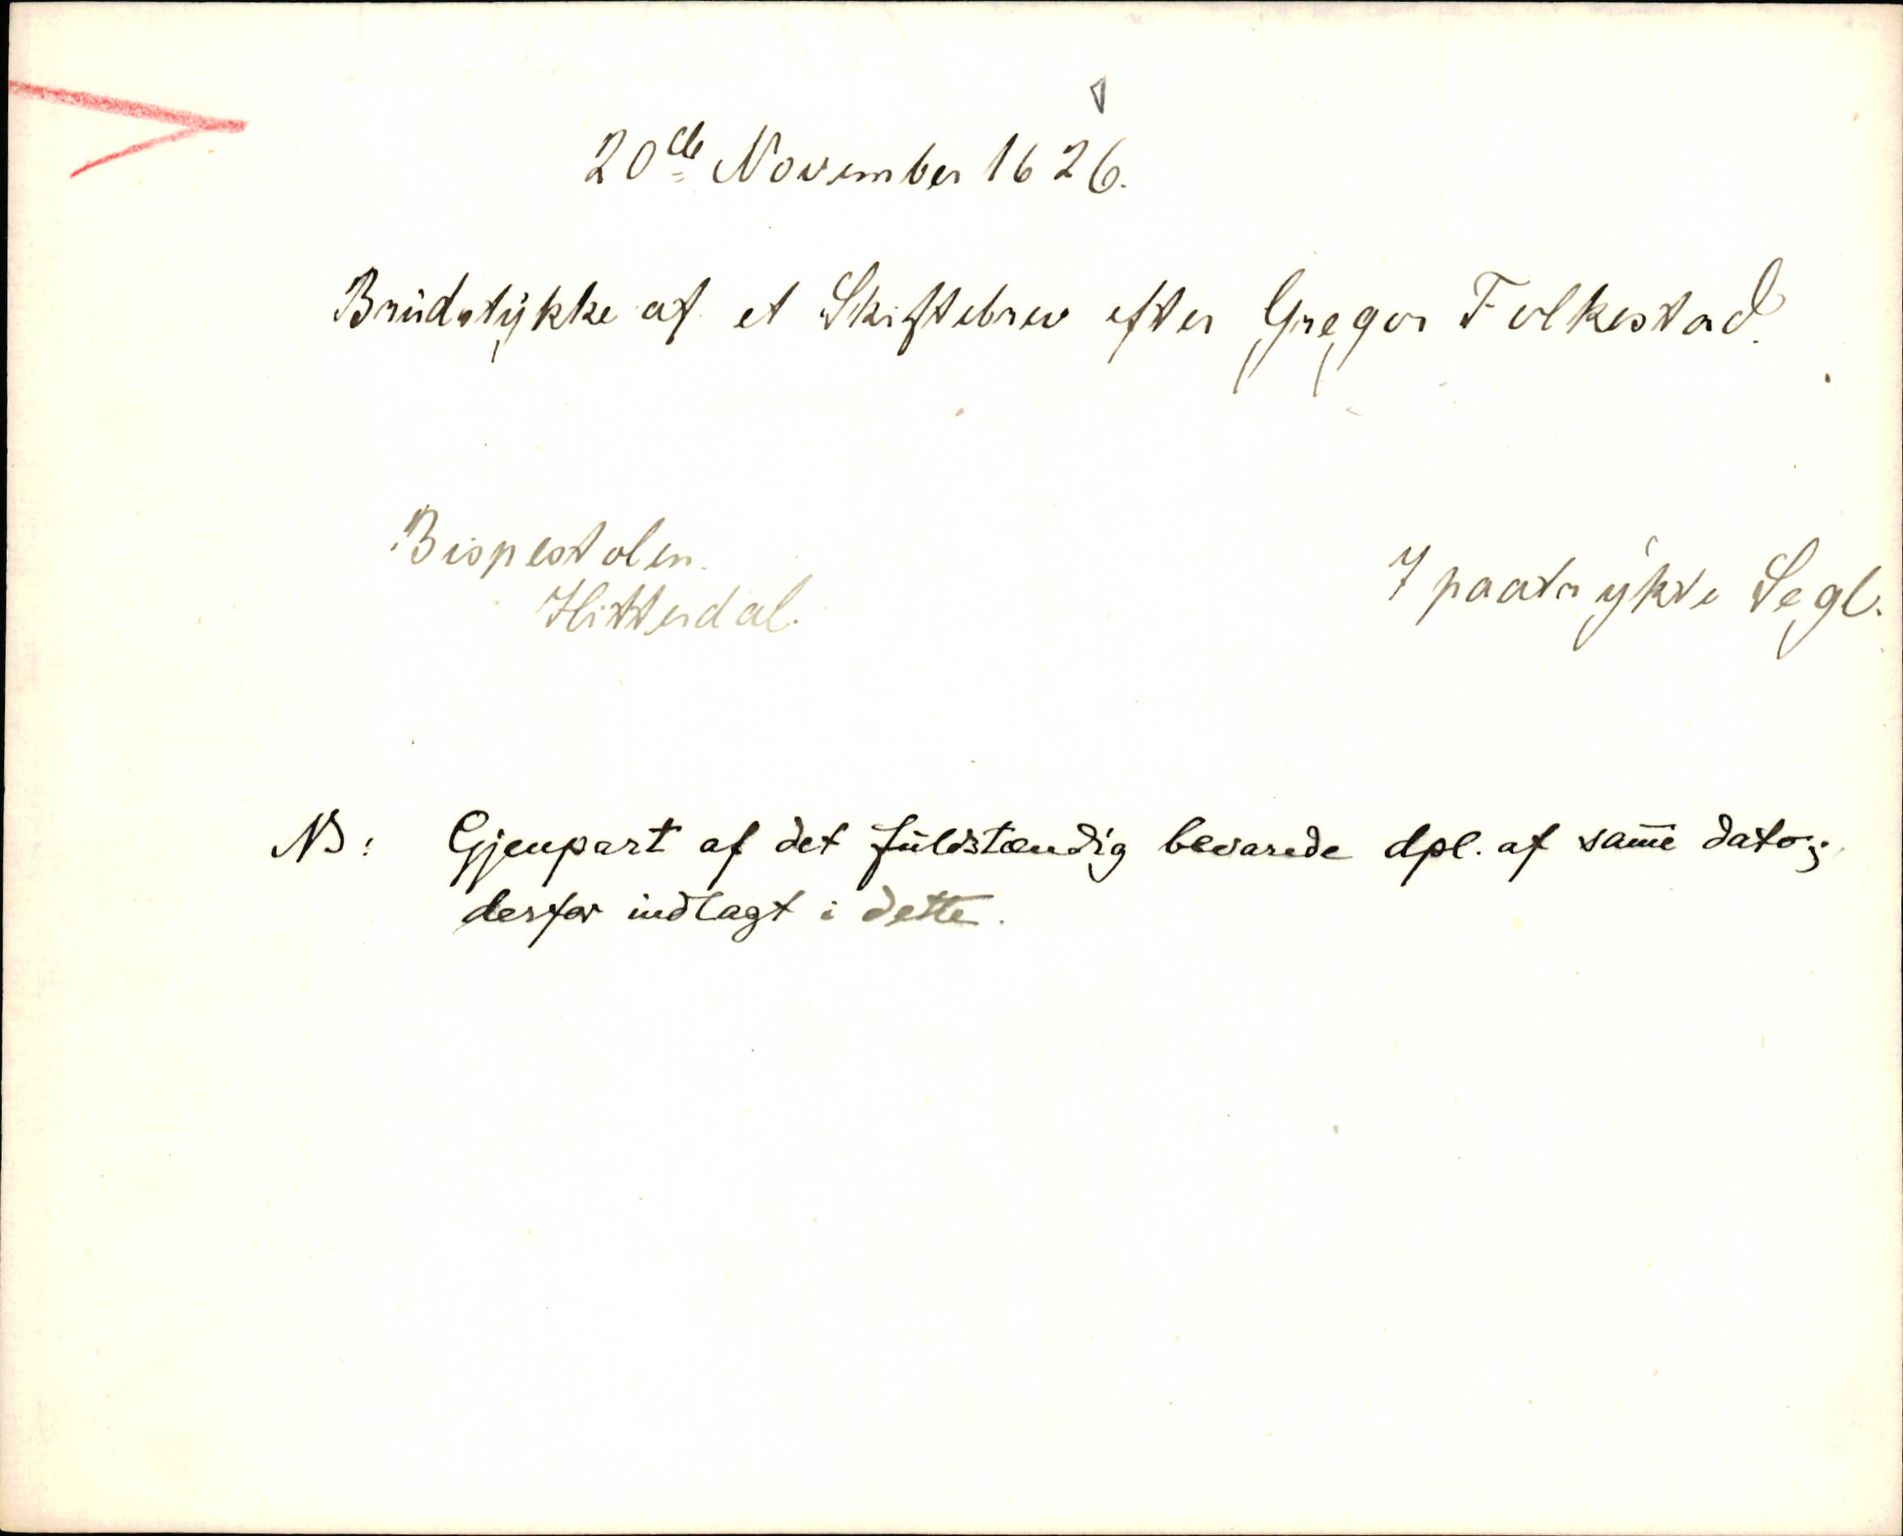 20de November 1626.
Brudstykke af et Skiftebrev efter Gregor Folkestad.
Bispestolen.
Hitterdal.
7 paatrykte Segl.
NB: Gjenpart af det fuldstændig bevarede dpl. af sam̅e dato;
derfor indlagt i dette.